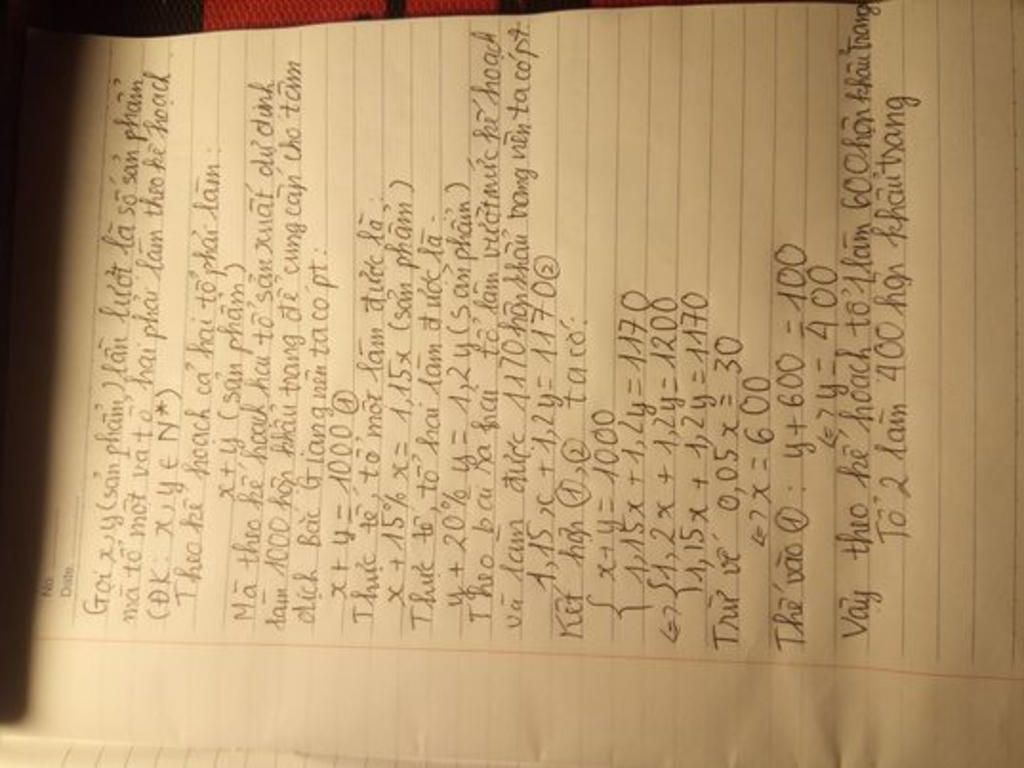 No.
Date
Gọi x, y (sản phẩm) lần lượt là số sản phẩm
mà tổ một và tổ hai phải làm theo kế hoạch
(ĐK: x, y ∈ N*)
Theo kế hoạch cả hai tổ phải làm:
x + y (sản phẩm)
Mà theo kế hoạch hai tổ sản xuất dự định
làm 1000 hộp khẩu trang để cung cấp cho tâm
dịch Bắc Giang nên ta có pt:
x + y = 1000 ①
Thực tế, tổ một làm được là:
x + 15% x = 1,15x (sản phẩm)
Thực tế, tổ hai làm được là:
y + 20% y = 1,2y (sản phẩm)
Theo bài ra hai tổ làm vượt mức kế hoạch
và làm được 1170 hộp khẩu trang nên ta có pt:
1,15x + 1,2y = 1170 ②
Kết hợp ①, ② ta có:
{ x + y = 1000
{ 1,15x + 1,2y = 1170
<=> { 1,2x + 1,2y = 1200
{ 1,15x + 1,2y = 1170
Trừ vế 0,05x = 30
<=> x = 600
Thế vào ①: y + 600 = 100
<=> y = 400
Vậy theo kế hoạch tổ 1 làm 600 hộp khẩu trang
Tổ 2 làm 400 hộp khẩu trang